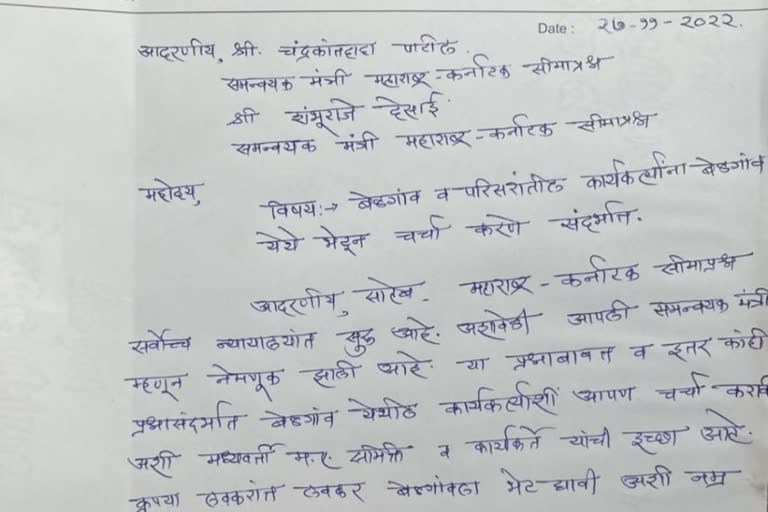 Date: २७-११-२०२२.
आदरणीय, श्री. चंद्रकांतदादा पाटील.
समन्वयक मंत्री महाराष्ट्र-कर्नाटक सीमाप्रश्न
श्री शंभूराजे देसाई.
समन्वयक मंत्री महाराष्ट्र-कर्नाटक सीमाप्रश्न
महोदय,
विषय:→ बेळगांव व परिसरांतील कार्यकर्त्यांना बेळगांव
येथे भेटून चर्चा करणे संदर्भात.
आदरणीय, साहेब. महाराष्ट्र-कर्नाटक सीमाप्रश्न
सर्वोच्च न्यायालयांत सुरु आहे. अशावेळी आपली समन्वयक मंत्री
म्हणून नेमणूक झाली आहे. या प्रश्नाबाबत व इतर कांही
प्रश्नासंदर्भात बेळगांव येथील कार्यकर्त्यांशी आपण चर्चा करावी
अशी मध्यवर्ती म.ए. समिती व कार्यकर्ते यांची इच्छा आहे.
कृपया लवकरांत लवकर बेळगांवला भेट द्यावी अशी नम्र